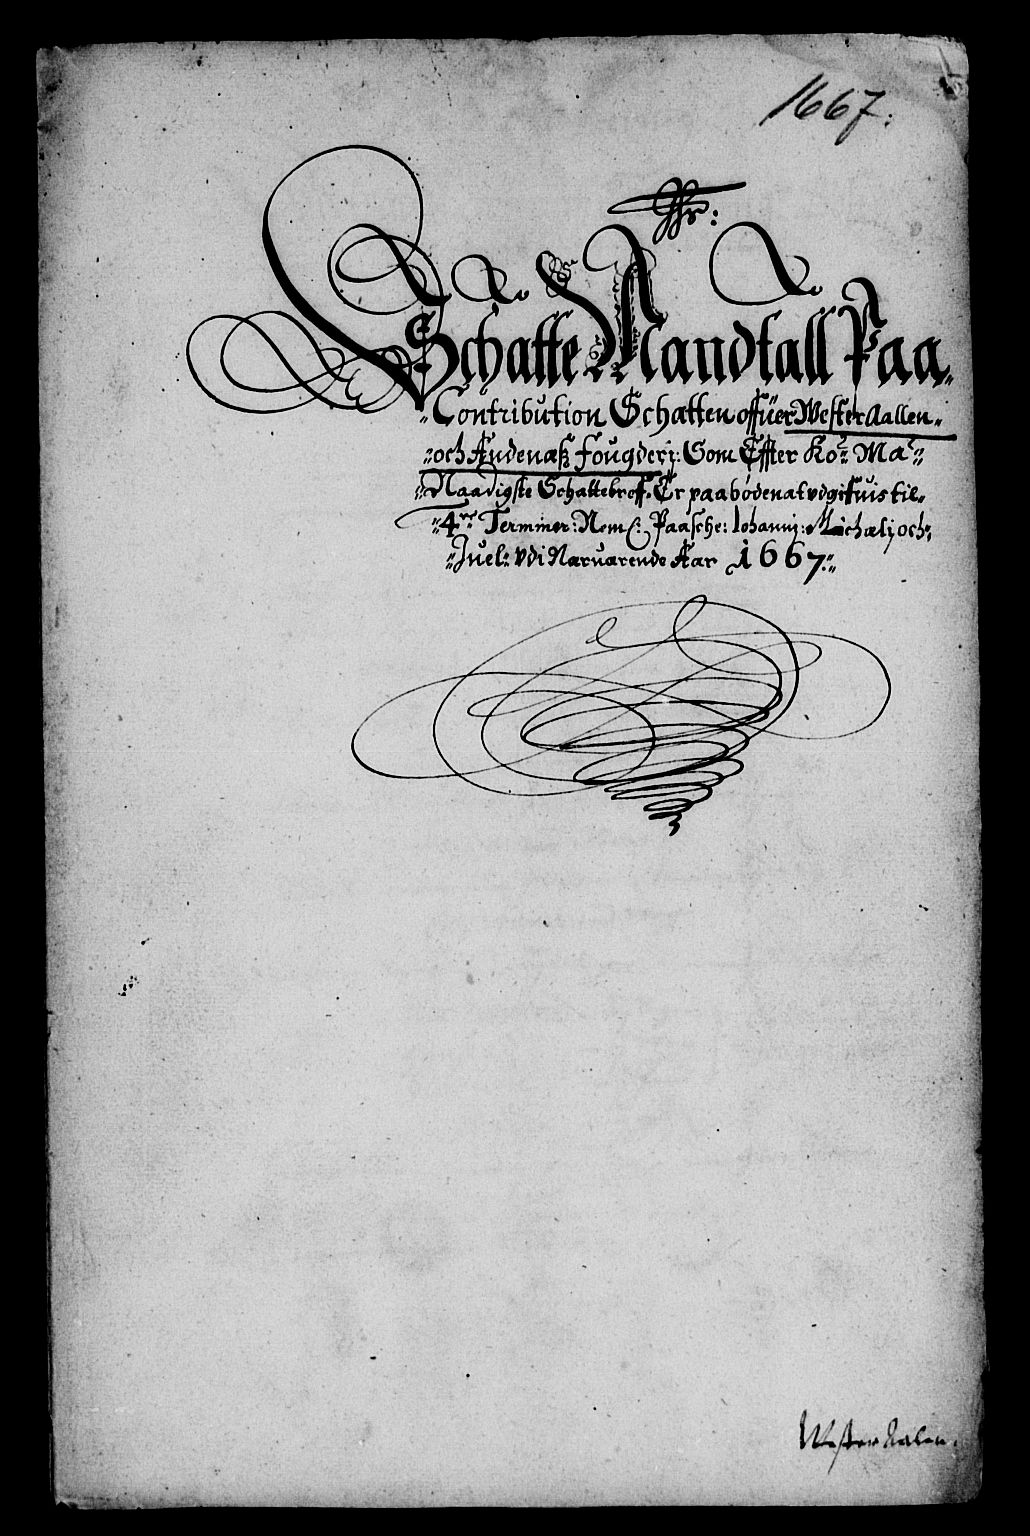 1667:
Schatte Mandtall Paa
Contribution Schatten offuer Wester Aallen
och Andenæß Fougderj: Som Effter Ko: Ma:
Naadigste Schattebreff. Er paabøden at vdgifuis til
4re Terminer: Nem: Paasche: Iohannj: Michælj och
Juel: Vdi Nærværende Aar 1667:
Wester Aalen.